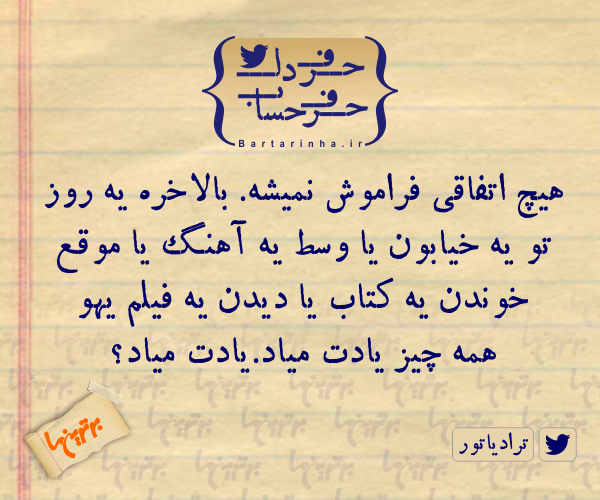 حرف دل
حرف حساب
Bartarinha.ir
هیچ اتفاقی فراموش نمیشه. بالاخره یه روز
تو یه خیابون یا وسط یه آهنگ یا موقع
خوندن یه کتاب یا دیدن یه فیلم یهو
همه چیز یادت میاد.یادت میاد؟
برترین‌ها
ترادیاتور